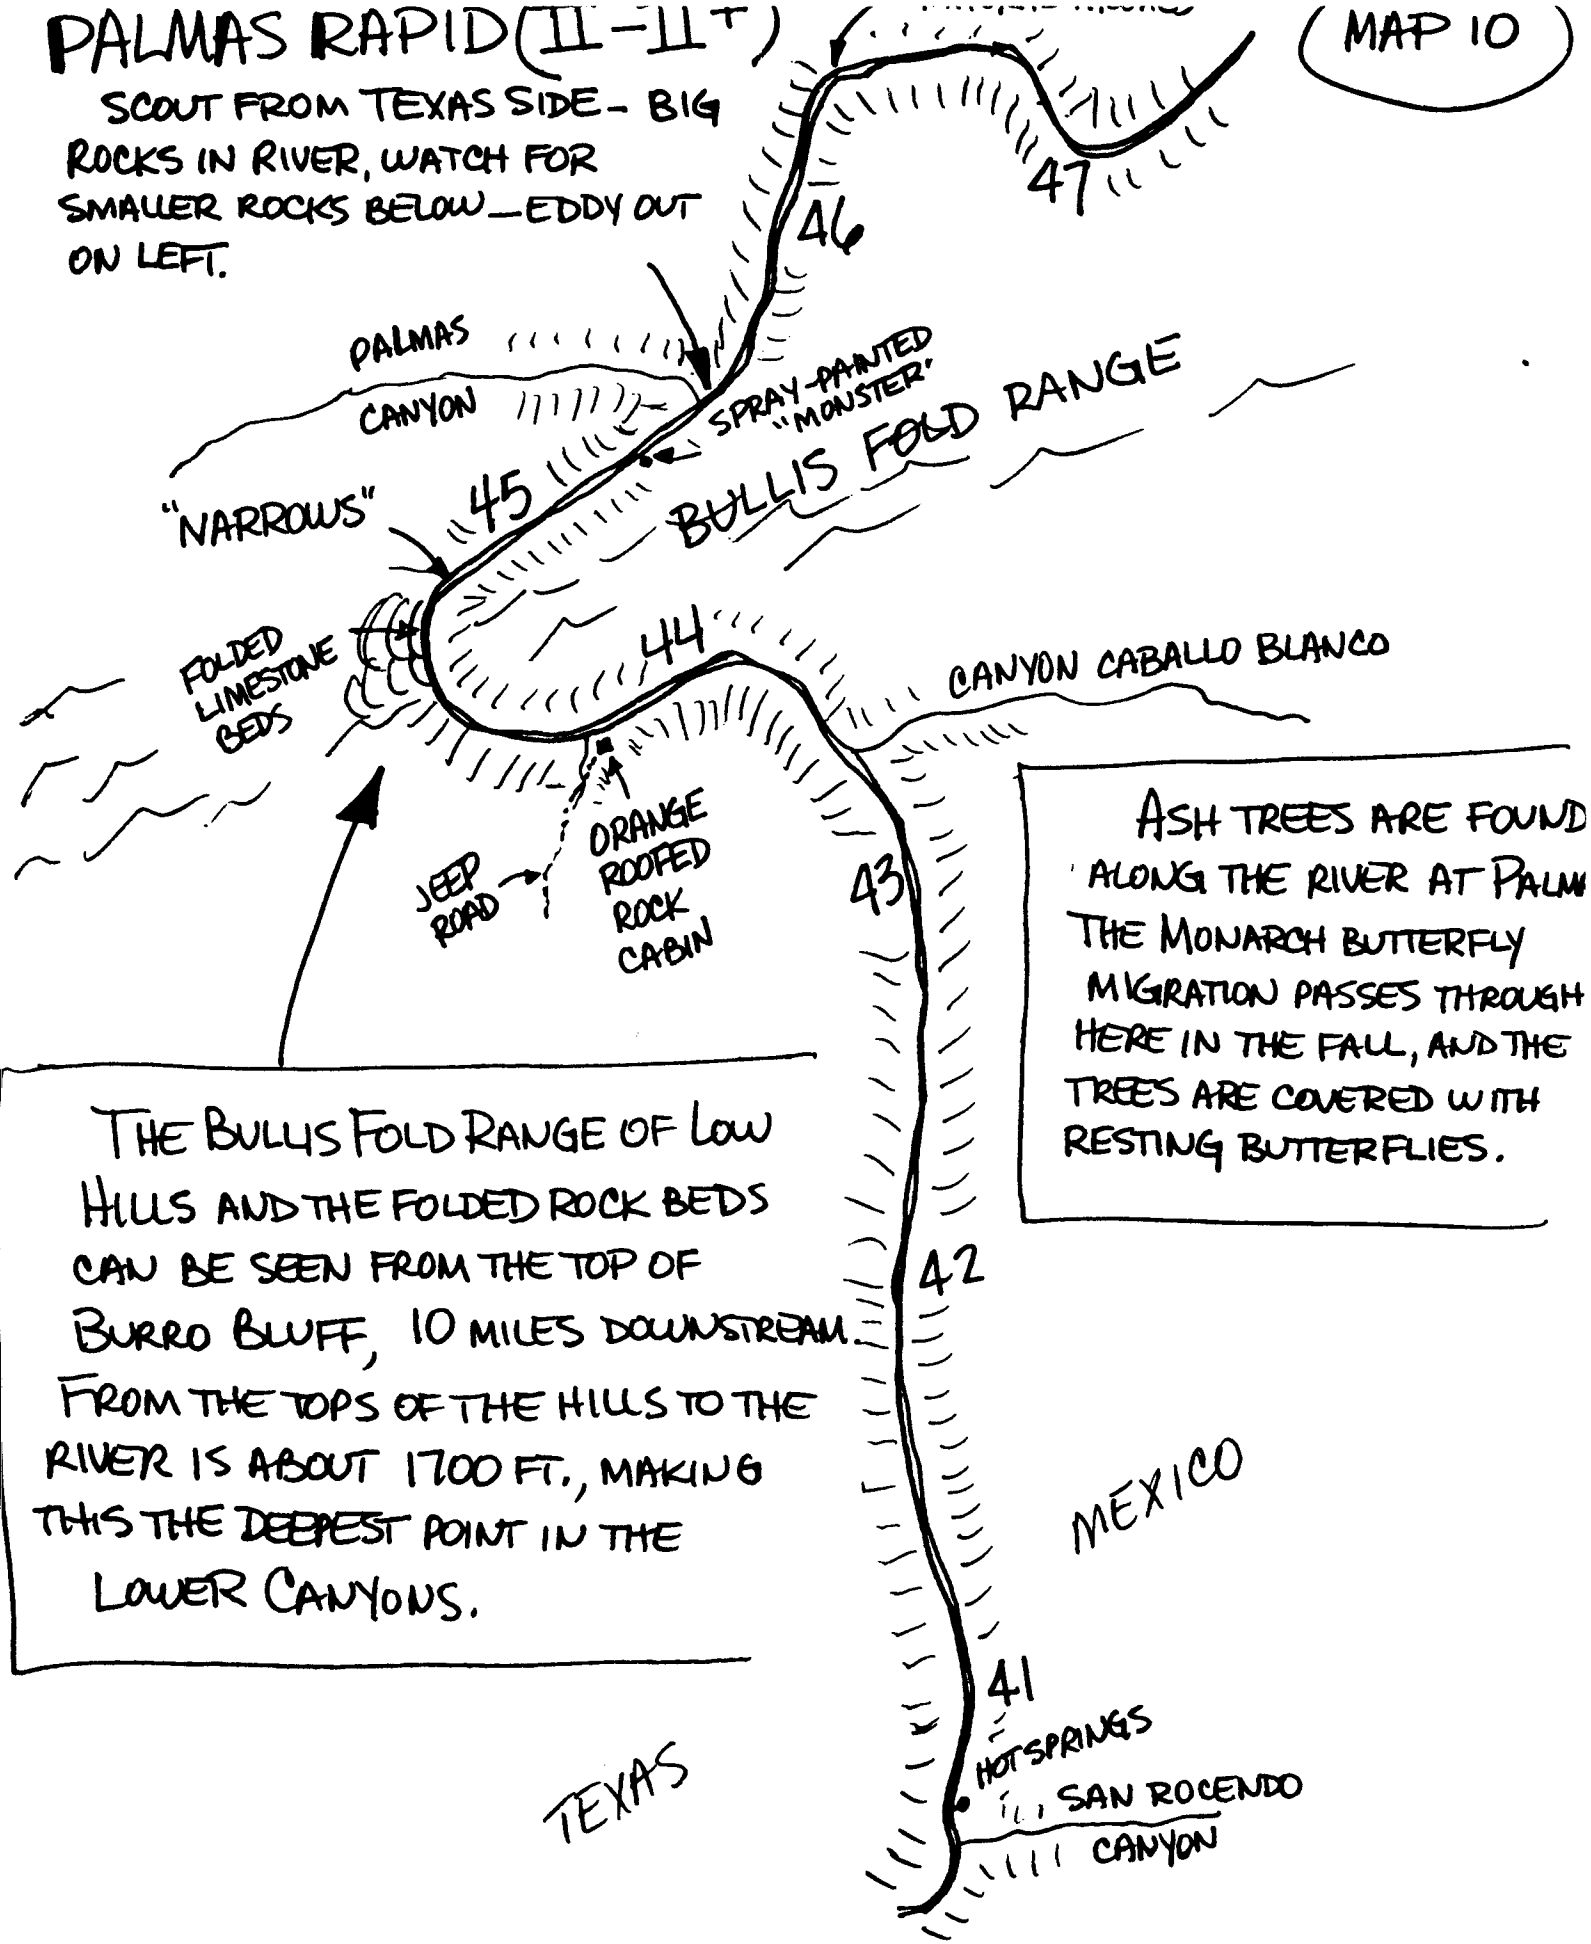 PALMAS RAPID (II-II+)
SCOUT FROM TEXAS SIDE- BIG
ROCKS IN RIVER, WATCH FOR
SMALLER ROCKS BELOW-EDDY OUT
ON LEFT.
MAP 10
47
46
PALMAS
CANYON
SPRAY-PAINTED
"MONSTER"
BULLIS FOLD RANGE
45
"NARROWS"
FOLDED
LIMESTONE
BEDS
44
CANYON CABALLO BLANCO
JEEP
ROAD
ORANGE
ROOFED
ROCK
CABIN
43
ASH TREES ARE FOUND
ALONG THE RIVER AT PALM
THE MONARCH BUTTERFLY
MIGRATION PASSES THROUGH
HERE IN THE FALL, AND THE
TREES ARE COVERED WITH
RESTING BUTTERFLIES.
THE BULLIS FOLD RANGE OF LOW
HILLS AND THE FOLDED ROCK BEDS
CAN BE SEEN FROM THE TOP OF
BURRO BLUFF, 10 MILES DOWNSTREAM.
FROM THE TOPS OF THE HILLS TO THE
RIVER IS ABOUT 1700 FT., MAKING
THIS THE DEEPEST POINT IN THE
LOWER CANYONS.
42
MEXICO
41
HOT SPRINGS
TEXAS
SAN ROCENDO
CANYON